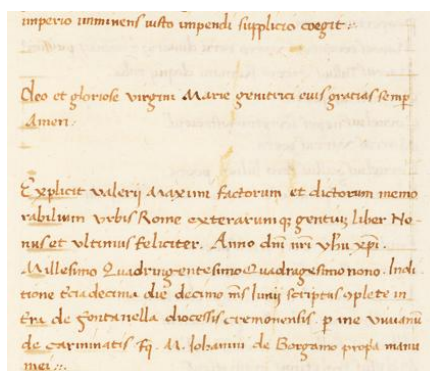 imperio imminens iusto impendi supplicio coegit :
Deo et gloriose virgini Marie genitrici eius gracias semp
Amen :
Explicit valerij Maximi factorum et dictorum memo
rabilium vrbis Rome exterarumq; gentiuz liber No
nus et vltimus feliciter. Anno dñi nri yhu xpi.
Millesimo Quadringentesimo Quadragesimo nono. Indi
tione decima die decimo mis Iunij scriptus in
de Fontanella diocessis cremonensis. p me Vivianu
de carminatis fq. M. Iohanini de Borgamo propa manu
mei :